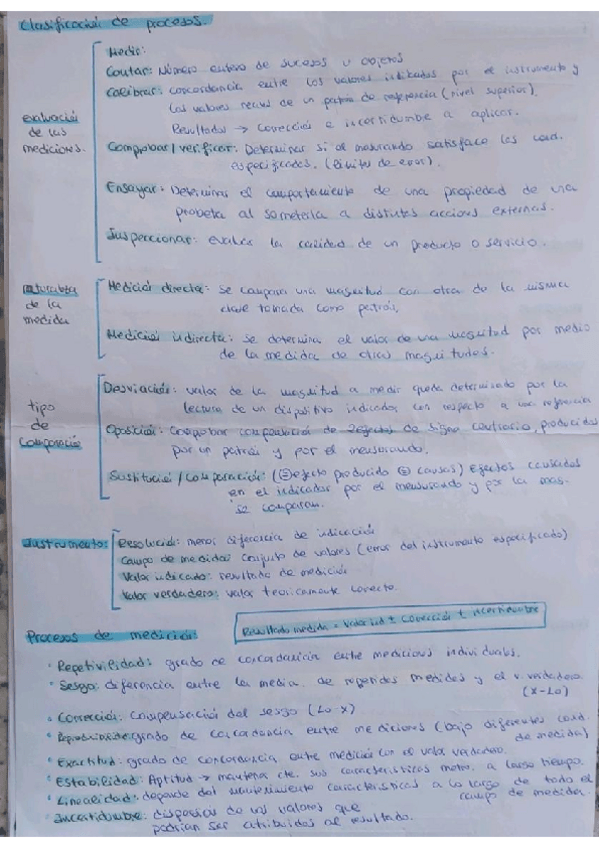 Clasificación de procesos.
Medir:
Contar: Número entero de sucesos u objetos
Calibrar: concordancia entre los valores indicados por el instrumento y
los valores de un patrón de referencia (nivel superior)
Resultados → Corrección e incertidumbre a aplicar.
evaluación
de las
mediciones.
Comprobar/verificar: Determinar si el mensurando satisface las cond.
especificadas. (límites de error).
Ensayar: Determinar el comportamiento de una propiedad de una
probeta al someterla a distintas acciones externas.
Inspeccionar: evaluar la calidad de un producto o servicio.
naturaleza
de la
medida
Medición directa: se compara una magnitud con otra de la misma
clase tomada como patrón.
Medición indirecta: se determina el valor de una magnitud por medio
de la medida de otras magnitudes.
tipo
de
comparación
Desviación: valor de la magnitud a medir queda determinado por la
lectura de un dispositivo indicador con respecto a una referencia
Oposición: Comprobar compensación de 2 efectos de signo contrario, producidos
por un patrón y por el mensurando.
Sustitución/comparación: (= efecto producido = causas) Efectos causados
en el indicador por el mensurando y por la
se comparan.
Instrumento:
Resolución: menor diferencia de indicación
Campo de medida: conjunto de valores (error del instrumento especificado)
Valor indicado: resultado de medición
Valor verdadero: valor teoricamente correcto.
Procesos de medición:
Resultado medida = Valor ind ± corrección ± incertidumbre
• Repetividad: grado de concordancia entre mediciones individuales.
• Sesgo: diferencia entre la media de repetidas medidas y el v. verdadero
(x-Lo)
• Corrección: Compensación del sesgo (Lo x)
• Reproducibilidad: grado de concordancia entre mediciones (bajo diferentes cond.
de medida)
• Exactitud: grado de concordancia entre medición con el valor verdadero.
• Estabilidad: Aptitud → mantener cte. sus características metro. a largo tiempo.
• Linealidad: depende del mantenimiento características a lo largo de todo el
campo de medida.
• Incertidumbre: dispersión de los valores que
podrían ser atribuidos al resultado.